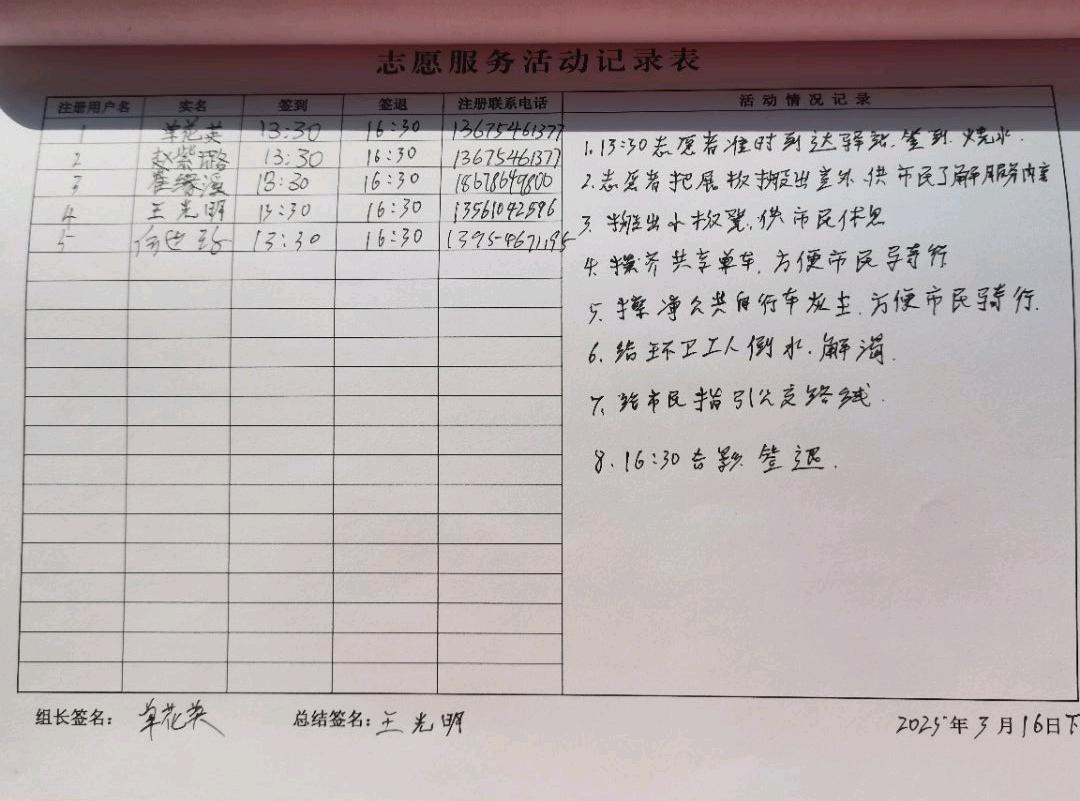 志愿服务活动记录表
注册用户名 实名 签到 签退 注册联系电话 活动情况记录
1 单花英 13:30 16:30 13675461377
2 赵紫璐 13:30 16:30 13675461377
3 崔缘溪 13:30 16:30 18678649800
4 王光明 13:30 16:30 13561042596
5 13:30 16:30 13954671195
1. 13:30志愿者准时到达驿站.签到.烧水.
2.志愿者把展板搬出室外供市民了解服务内容
3. 搬出小板凳,供市民休息
4. 共享单车,方便市民骑行
5. 净公共自行车灰尘.方便市民骑行.
6. 给环卫工人倒水.解渴.
7. 给市民指引公交路线.
8. 16:30合影 签退.
组长签名: 单花英 总结签名: 王光明 2025年3月16日下